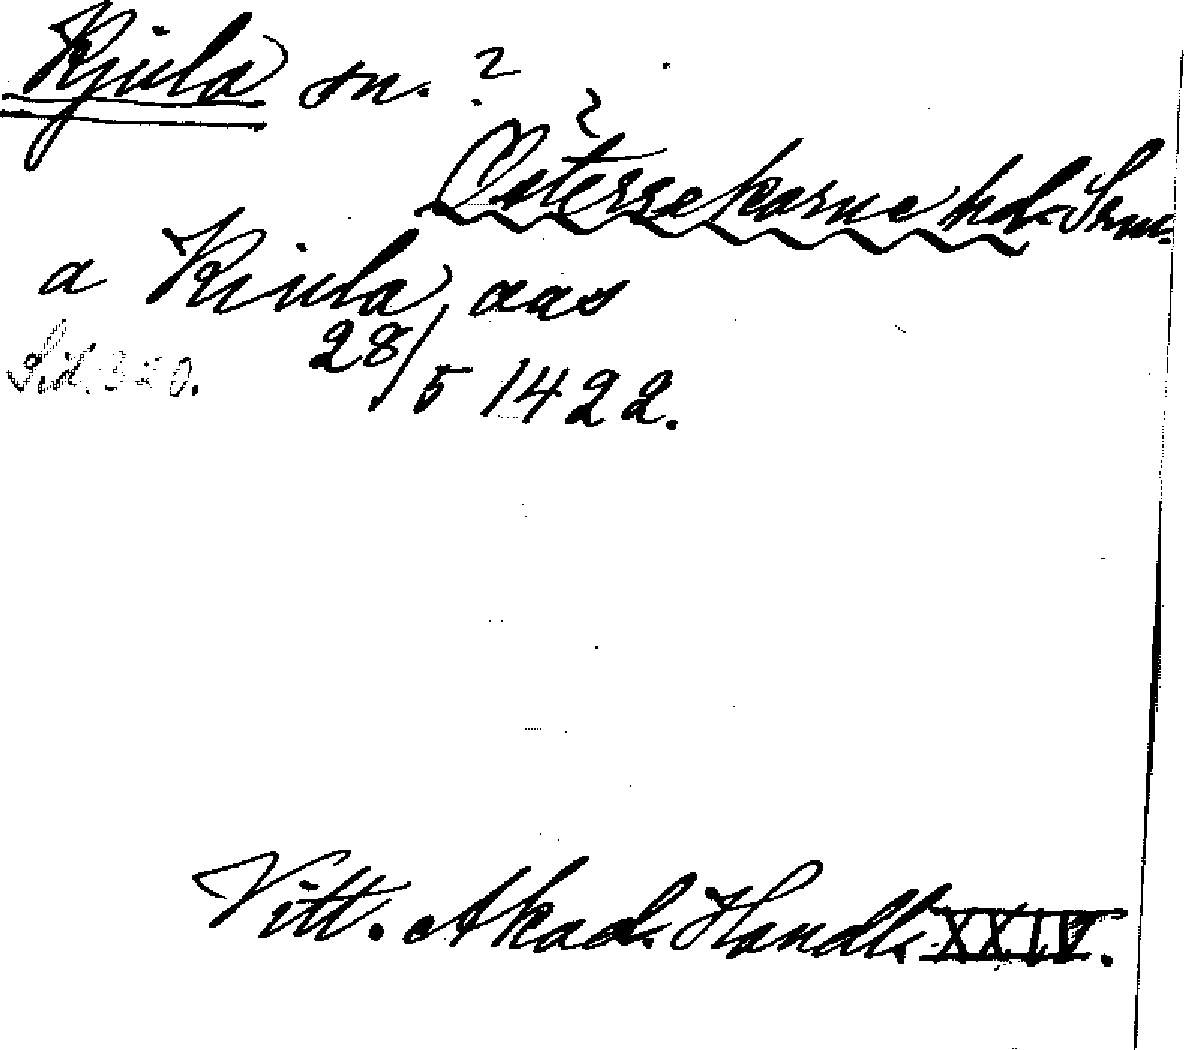 Kjula sn. ?
?
Österrekarne hd. Srm.
a Kiula aas
Sid. 320. 28/5 1422.
Vitt. Akad. Handl. XXIV.